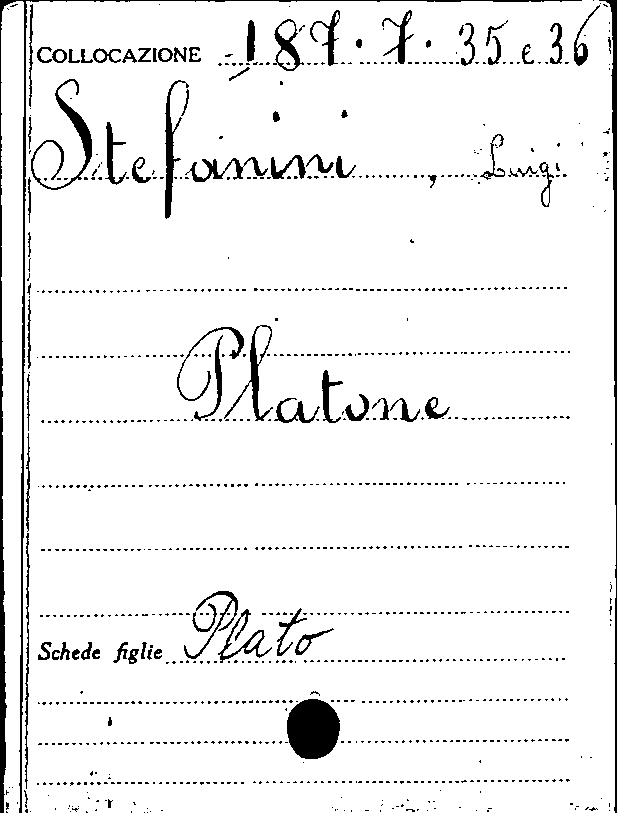 COLLOCAZIONE 187.7.35 e 36
Stefanini, Luigi
Platone
Schede figlie Plato